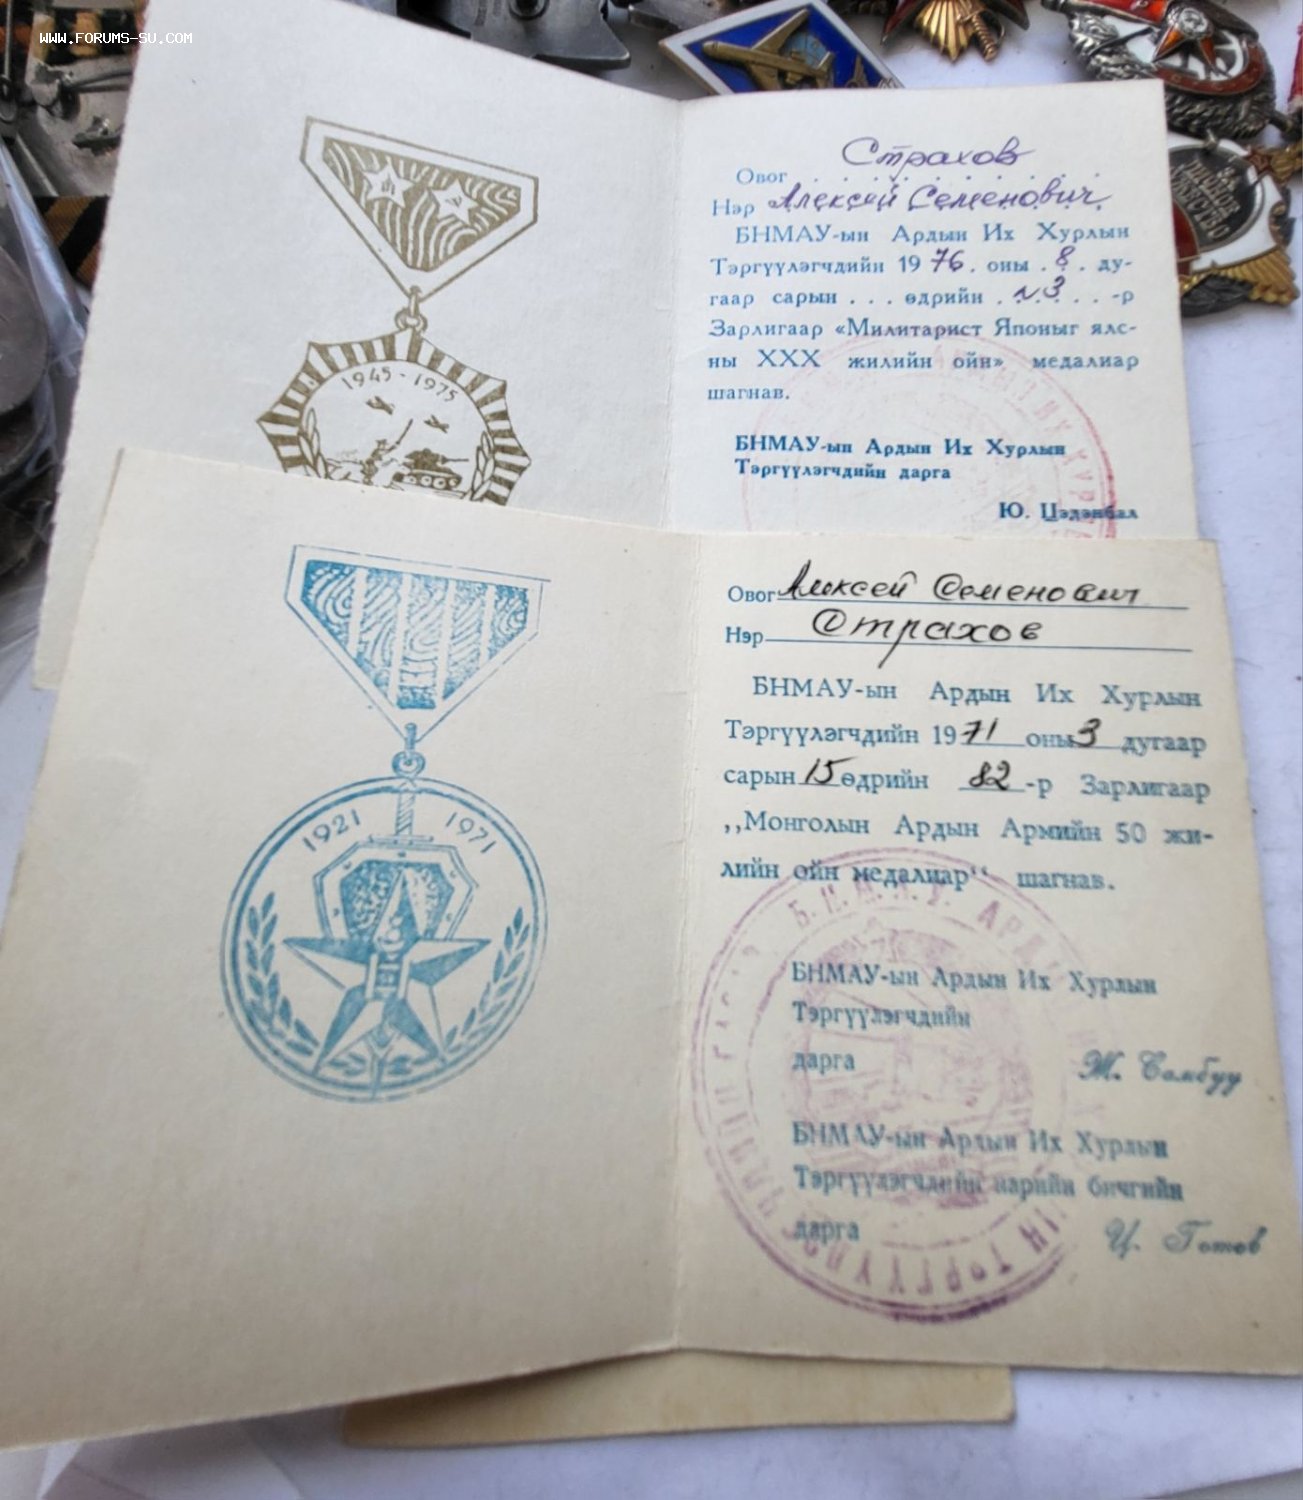 WWW.FORUMS-SU.COM
1945-1975
Страхов
Овог . . . . . . . . . .
Нэр Алексей Семенович
БНМАУ-ын Ардын Их Хурлын
Тэргүүлэгчдийн 1976. оны . 8 . ду-
гаар сарын . . . өдрийн . . . . . -р
Зарлигаар «Милитарист Японыг ялс-
ны XXX жилийн ойн» медалиар
шагнав.
БНМАУ-ын Ардын Их Хурлын
Тэргүүлэгчдийн дарга
Ю. Цэдэнбал
1921 1971
Овог Алексей Семенович
Нэр Страхов
БНМАУ-ын Ардын Их Хурлын
Тэргүүлэгчдийн 1971 оны 3 дугаар
сарын 15 өдрийн 82-р Зарлигаар
,,Монголын Ардын Армийн 50 жи-
лийн ойн медалиар“ шагнав.
Б.Н.М.А.У. АРДЫН
БНМАУ-ын Ардын Их Хурлын
Тэргүүлэгчдийн
дарга
Ж. Самбуу
БНМАУ-ын Ардын Их Хурлын
Тэргүүлэгчдийн нарийн бичгийн
дарга
Ц. Готов